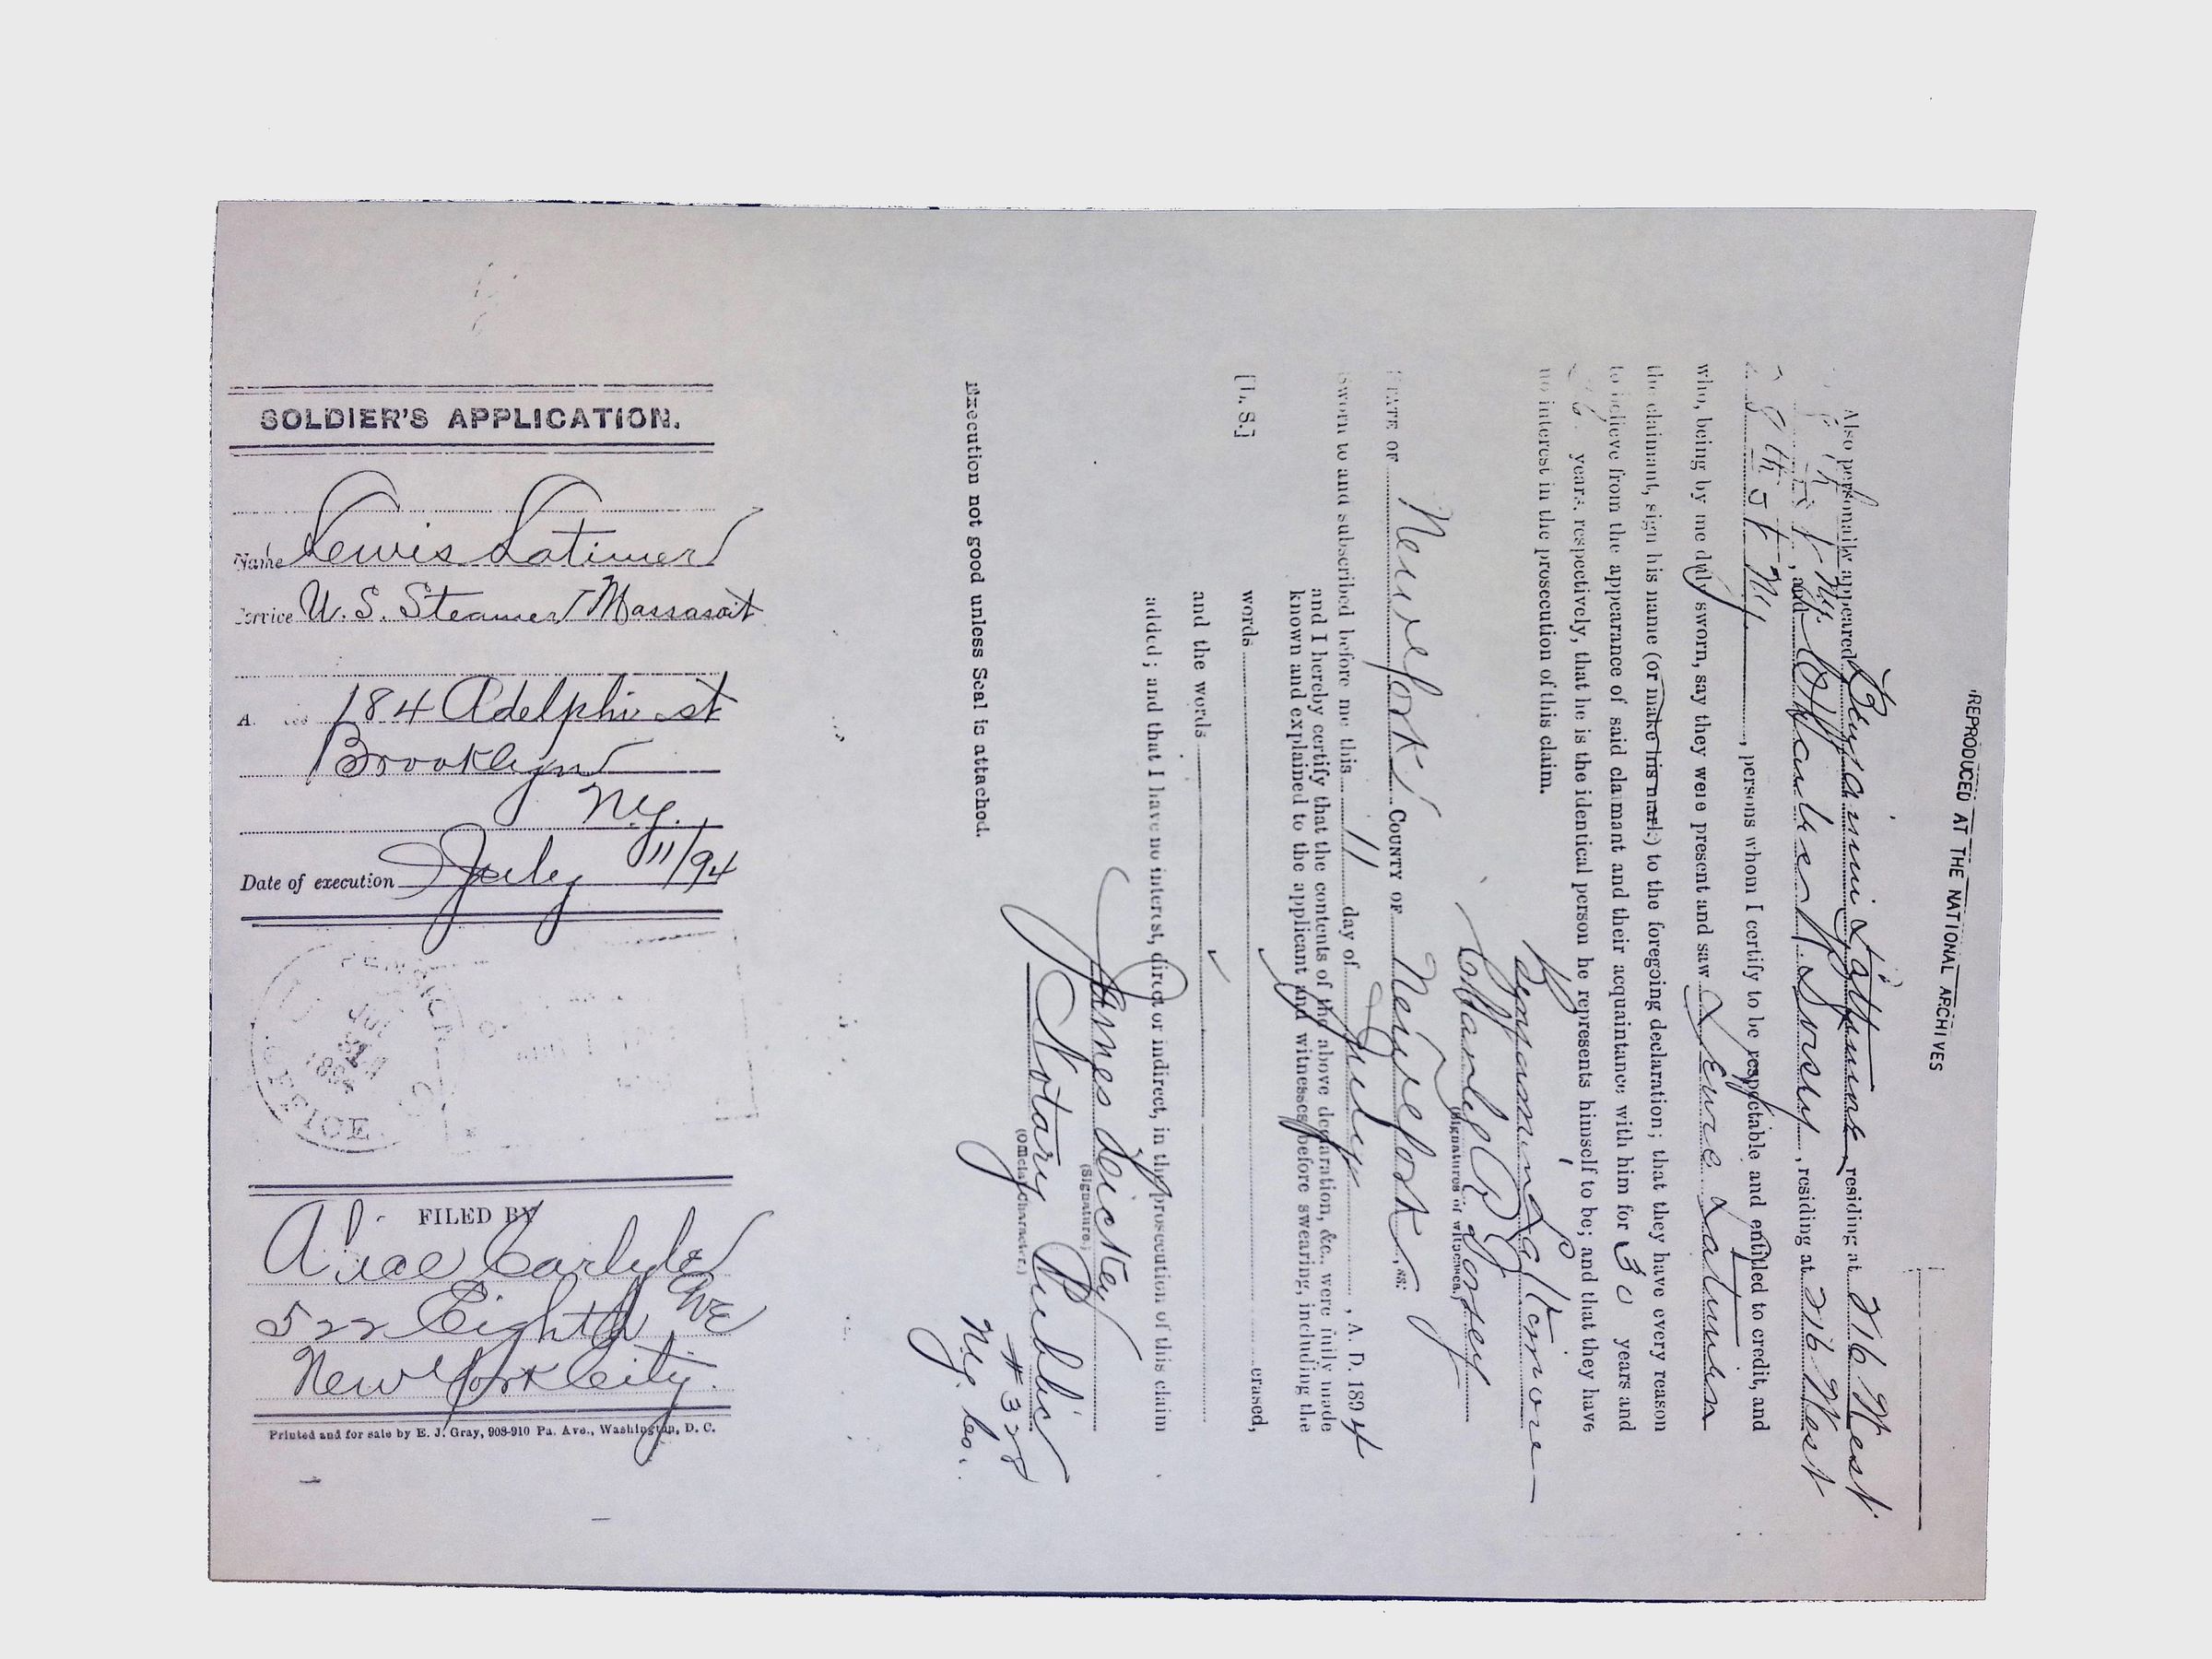 REPRODUCED AT THE NATIONAL ARCHIVES
Also personally appeared Benjamin residing at 216 West
N.Y., and Charles R. Dorsey, residing at 216 West
28th St N.Y., persons whom I certify to be respectable and entitled to credit, and
who, being by me duly sworn, say they were present and saw Lewis Latimer
the claimant, sign his name (or make his mark) to the foregoing declaration; that they have every reason
to believe from the appearance of said claimant and their acquaintance with him for 30 years and
years, respectively, that he is the identical person he represents himself to be; and that they have
no interest in the prosecution of this claim.
Benjamin
Charles R Dorsey
(Signatures of witnesses.)
STATE OF New York COUNTY OF New York, ss:
Sworn to and subscribed before me this 11 day of July, A. D. 1894
and I hereby certify that the contents of the above declaration, &c., were fully made
known and explained to the applicant and witnesses before swearing, including the
[L. S.] words erased,
and the words
added; and that I have no interest, direct or indirect, in the prosecution of this claim
James Dickey
(Signature.)
Notary Public
(Official character.)
#328
N.Y. Co.
Execution not good unless Seal is attached.
SOLDIER'S APPLICATION.
Name Lewis Latimer
Service U.S. Steamer Massasoit
184 Adelphi st
Brooklyn
N.Y.
Date of execution July 11/94
PENSION
JUL
OFFICE
FILED BY
Alice Carlyle
522 Eighth Ave
New York City.
Printed and for sale by E. J. Gray, 908-910 Pa. Ave., Washington, D. C.